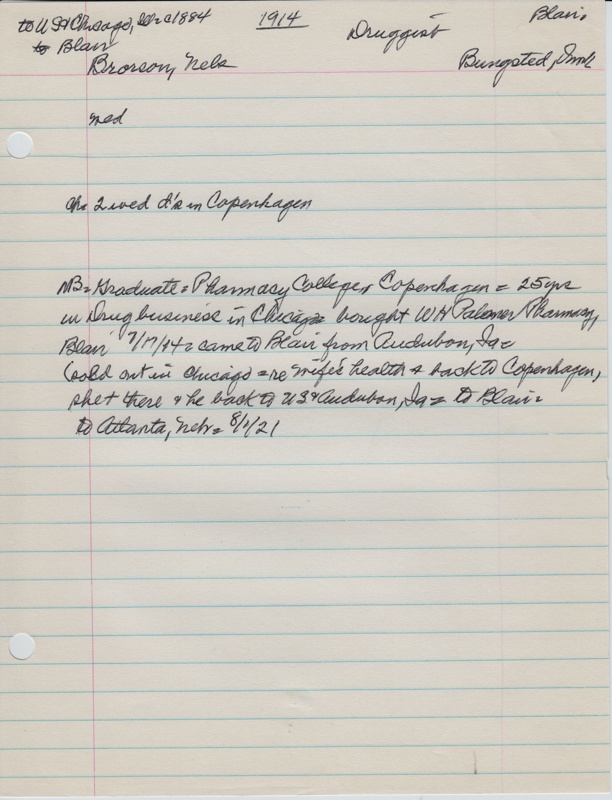 to US & Chicago, Ill c1884 1914 Druggist Blair.
to Blair
Brorson, Nels Bungsted, Dmk
med
ch= 2 wed d's in Copenhagen
NB= Graduate= Pharmacy College, Copenhagen = 25 yrs
in Drug business in Chicago= bought WH Palmer Pharmacy,
Blair 7/17/14= came to Blair from Audubon, Ia=
(sold out in Chicago =re wife's health & back to Copenhagen,
she there & he back to US & Audubon, Ia= to Blair=
to Atlanta, Nebr= 8/1/21